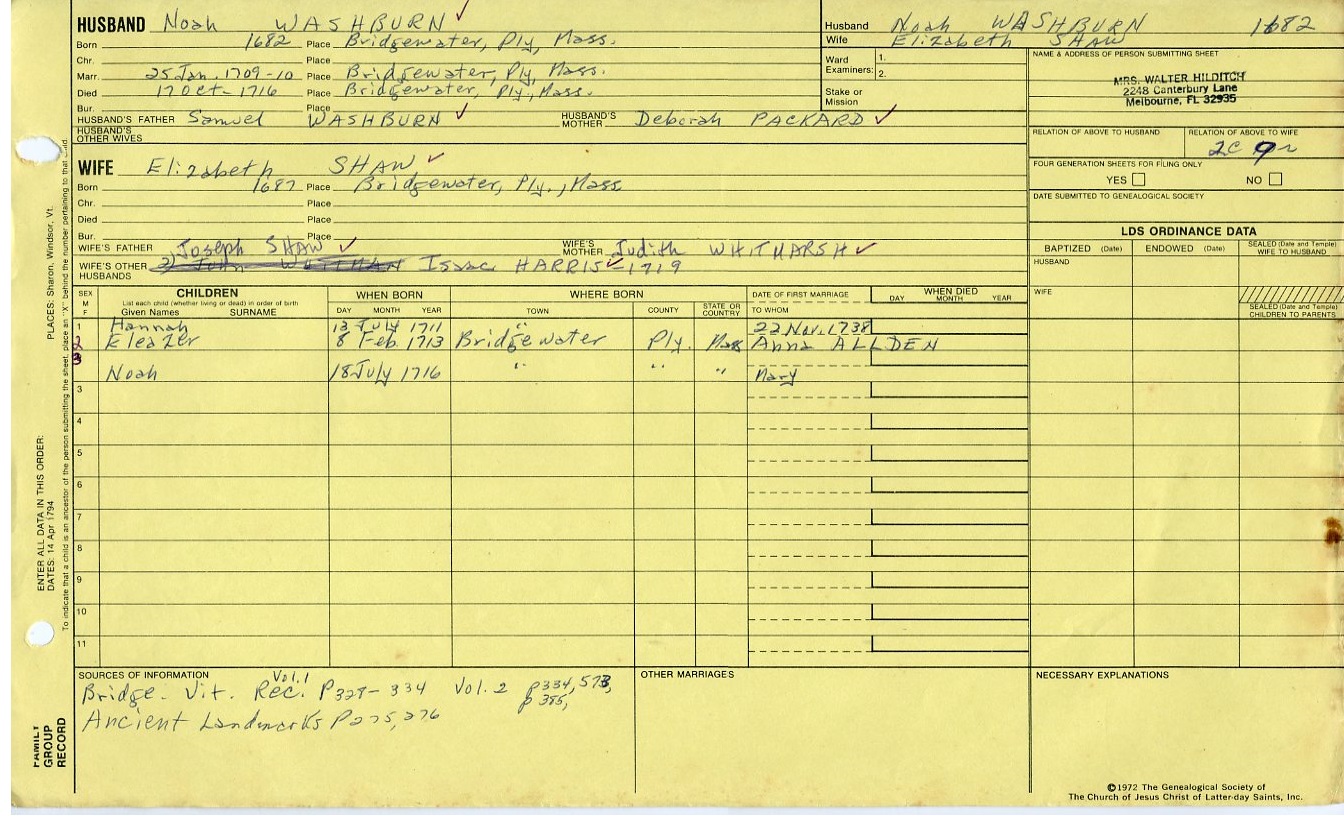 HUSBAND Noah WASHBURN ✓
Born 1682 Place Bridgewater, Ply, Mass.
Chr. Place
Marr. 25 Jan. 1709-10 Place Bridgewater, Ply, Mass.
Died 17 Oct-1716 Place Bridgewater, Ply, Mass.
Bur. Place
HUSBAND'S FATHER Samuel WASHBURN ✓ HUSBAND'S MOTHER Deborah PACKARD ✓
HUSBAND'S OTHER WIVES
Husband Noah WASHBURN 1682
Wife Elizabeth SHAW
Ward Examiners: 1.
2.
Stake or Mission
NAME & ADDRESS OF PERSON SUBMITTING SHEET
MRS. WALTER HILDITCH
2248 Canterbury Lane
Melbourne, FL 32935
RELATION OF ABOVE TO HUSBAND RELATION OF ABOVE TO WIFE
2C 9r
FOUR GENERATION SHEETS FOR FILING ONLY
YES NO
DATE SUBMITTED TO GENEALOGICAL SOCIETY
WIFE Elizabeth SHAW ✓
Born 1687 Place Bridgewater, Ply., Mass
Chr. Place
Died Place
Bur. Place
WIFE'S FATHER Joseph SHAW ✓ WIFE'S MOTHER Judith WHITMARSH ✓
WIFE'S OTHER HUSBANDS 2) John WHITMAN Isaac HARRIS ✓-1719
LDS ORDINANCE DATA
BAPTIZED (Date) ENDOWED (Date) SEALED (Date and Temple) WIFE TO HUSBAND
HUSBAND
WIFE
SEALED (Date and Temple) CHILDREN TO PARENTS
SEX M F CHILDREN WHEN BORN WHERE BORN DATE OF FIRST MARRIAGE WHEN DIED
List each child (whether living or dead) in order of birth
Given Names SURNAME DAY MONTH YEAR TOWN COUNTY STATE OR COUNTRY TO WHOM DAY MONTH YEAR
1 Hannah 12 July 1711 " 22 Nov. 1738
2 Eleazer 8 Feb. 1713 Bridgewater Ply. Mass Anna ALLDEN
3
Noah 18 July 1716 " " " Mary
3
4
5
6
7
8
9
10
11
SOURCES OF INFORMATION OTHER MARRIAGES NECESSARY EXPLANATIONS
Bridge. Vit. Rec. Vol.1 P327-334 Vol. 2 p334, 573,
p 385,
Ancient Landmarks P275,276
©1972 The Genealogical Society of
The Church of Jesus Christ of Latter-day Saints, Inc.
PLACES: Sharon, Windsor, Vt.
ENTER ALL DATA IN THIS ORDER:
DATES: 14 Apr 1794
To indicate that a child is an ancestor of the person submitting the sheet, place an "X" behind the number pertaining to that child.
FAMILY
GROUP
RECORD